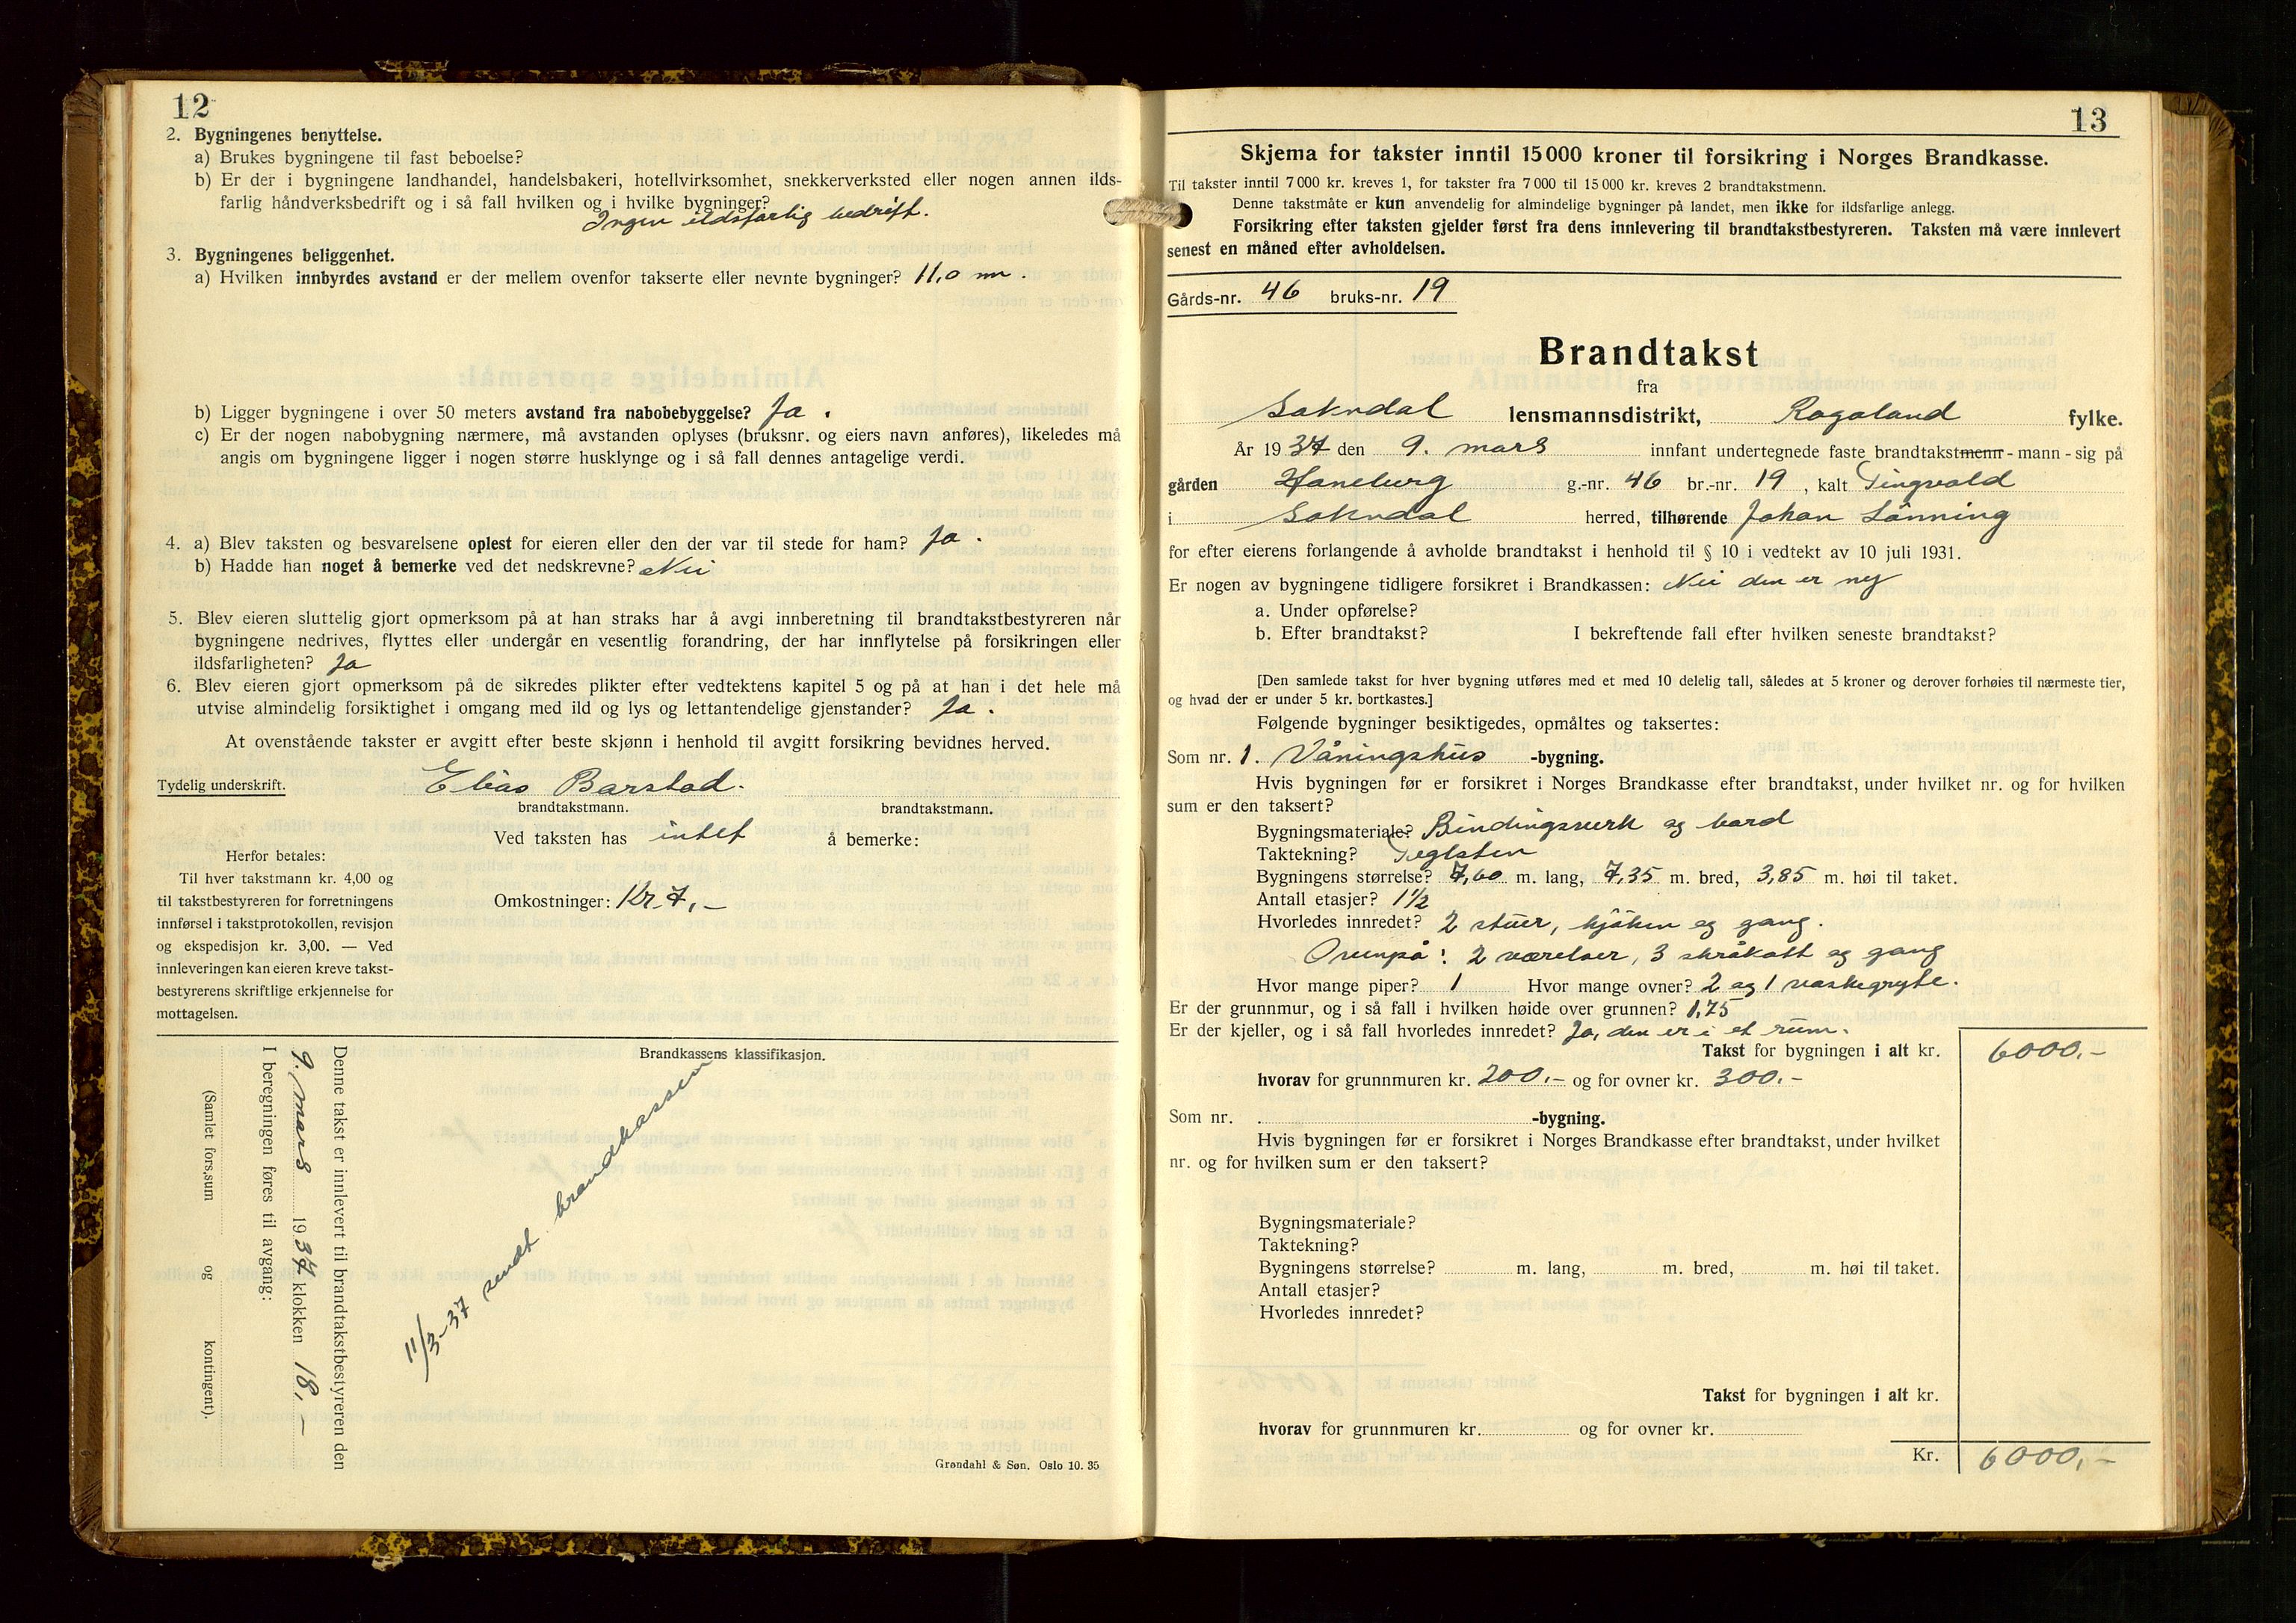 12
2. Bygningenes benyttelse.
a) Brukes bygningene til fast beboelse?
b) Er der i bygningene landhandel, handelsbakeri, hotellvirksomhet, snekkerverksted eller nogen annen ilds-
farlig håndverksbedrift og i så fall hvilken og i hvilke bygninger?
Ingen ildsfarlig bedrift.
3. Bygningenes beliggenhet.
a) Hvilken innbyrdes avstand er der mellem ovenfor takserte eller nevnte bygninger? 11,0 m.
b) Ligger bygningene i over 50 meters avstand fra nabobebyggelse? Ja.
c) Er der nogen nabobygning nærmere, må avstanden oplyses (bruksnr. og eiers navn anføres), likeledes må
angis om bygningene ligger i nogen større husklynge og i så fall dennes antagelige verdi.
4. a) Blev taksten og besvarelsene oplest for eieren eller den der var til stede for ham? Ja.
b) Hadde han noget å bemerke ved det nedskrevne? Nei
5. Blev eieren sluttelig gjort opmerksom på at han straks har å avgi innberetning til brandtakstbestyreren når
bygningene nedrives, flyttes eller undergår en vesentlig forandring, der har innflytelse på forsikringen eller
ildsfarligheten? Ja
6. Blev eieren gjort opmerksom på de sikredes plikter efter vedtektens kapitel 5 og på at han i det hele må
utvise almindelig forsiktighet i omgang med ild og lys og lettantendelige gjenstander? Ja.
At ovenstående takster er avgitt efter beste skjønn i henhold til avgitt forsikring bevidnes herved.
Tydelig underskrift. Elias Barstad.
brandtakstmann. brandtakstmann.
Ved taksten has intet å bemerke:
Herfor betales:
Til hver takstmann kr. 4,00 og
til takstbestyreren for forretningens
innførsel i takstprotokollen, revisjon
og ekspedisjon kr. 3,00. — Ved
innleveringen kan eieren kreve takst-
bestyrerens skriftlige erkjennelse for
mottagelsen.
Omkostninger: Kr. 7,—
Brandkassens klassifikasjon.
Denne takst er innlevert til brandtakstbestyreren den
9. mars 1937 klokken 18,—
I beregningen føres til avgang:
(Samlet fors.sum og kontingent).
11/3-37 sendt brandkassen
Grøndahl & Søn. Oslo 10. 35
13
Skjema for takster inntil 15 000 kroner til forsikring i Norges Brandkasse.
Til takster inntil 7 000 kr. kreves 1, for takster fra 7 000 til 15 000 kr. kreves 2 brandtakstmenn.
Denne takstmåte er kun anvendelig for almindelige bygninger på landet, men ikke for ildsfarlige anlegg.
Forsikring efter taksten gjelder først fra dens innlevering til brandtakstbestyreren. Taksten må være innlevert
senest en måned efter avholdelsen.
Gårds-nr. 46 bruks-nr. 19
Brandtakst
fra
Sokndal lensmannsdistrikt, Rogaland fylke.
År 1937 den 9. mars innfant undertegnede faste brandtakstmenn - mann - sig på
gården Haneberg g.-nr. 46 br.-nr. 19, kalt Tingvold
i Sokndal herred, tilhørende Johan Lønning
for efter eierens forlangende å avholde brandtakst i henhold til § 10 i vedtekt av 10 juli 1931.
Er nogen av bygningene tidligere forsikret i Brandkassen: Nei den er ny
a. Under opførelse?
b. Efter brandtakst? I bekreftende fall efter hvilken seneste brandtakst?
[Den samlede takst for hver bygning utføres med et med 10 delelig tall, således at 5 kroner og derover forhøies til nærmeste tier,
og hvad der er under 5 kr. bortkastes.]
Følgende bygninger besiktigedes, opmåltes og taksertes:
Som nr. 1. Våningshus -bygning.
Hvis bygningen før er forsikret i Norges Brandkasse efter brandtakst, under hvilket nr. og for hvilken
sum er den taksert?
Bygningsmateriale? Bindingsverk og bord
Taktekning? Teglsten
Bygningens størrelse? 7,60 m. lang, 7,35 m. bred, 3,85 m. høi til taket.
Antall etasjer? 1½
Hvorledes innredet? 2 stuer, kjøken og gang.
Ovenpå: 2 værelser, 3 skråkott og gang
Hvor mange piper? 1 Hvor mange ovner? 2 og 1 vaskegryte.
Er der grunnmur, og i så fall i hvilken høide over grunnen? 1,75
Er der kjeller, og i så fall hvorledes innredet? Ja, den er i et rum.
Takst for bygningen i alt kr. 6000.—
hvorav for grunnmuren kr. 200.— og for ovner kr. 300.—
Som nr. . -bygning.
Hvis bygningen før er forsikret i Norges Brandkasse efter brandtakst, under hvilket
nr. og for hvilken sum er den taksert?
Bygningsmateriale?
Taktekning?
Bygningens størrelse? m. lang, m. bred, m. høi til taket.
Antall etasjer?
Hvorledes innredet?
Takst for bygningen i alt kr.
hvorav for grunnmuren kr. og for ovner kr.
Kr. 6000,—